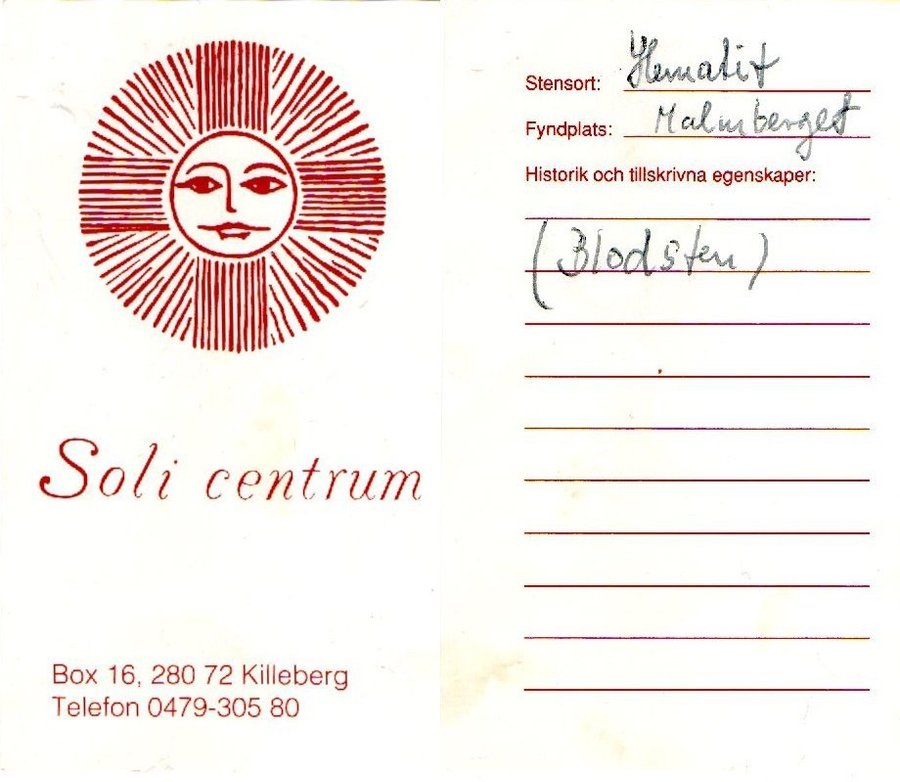 Soli centrum
Box 16, 280 72 Killeberg
Telefon 0479-305 80
Stensort: Hematit
Fyndplats: Malmberget
Historik och tillskrivna egenskaper:
(Blodsten)